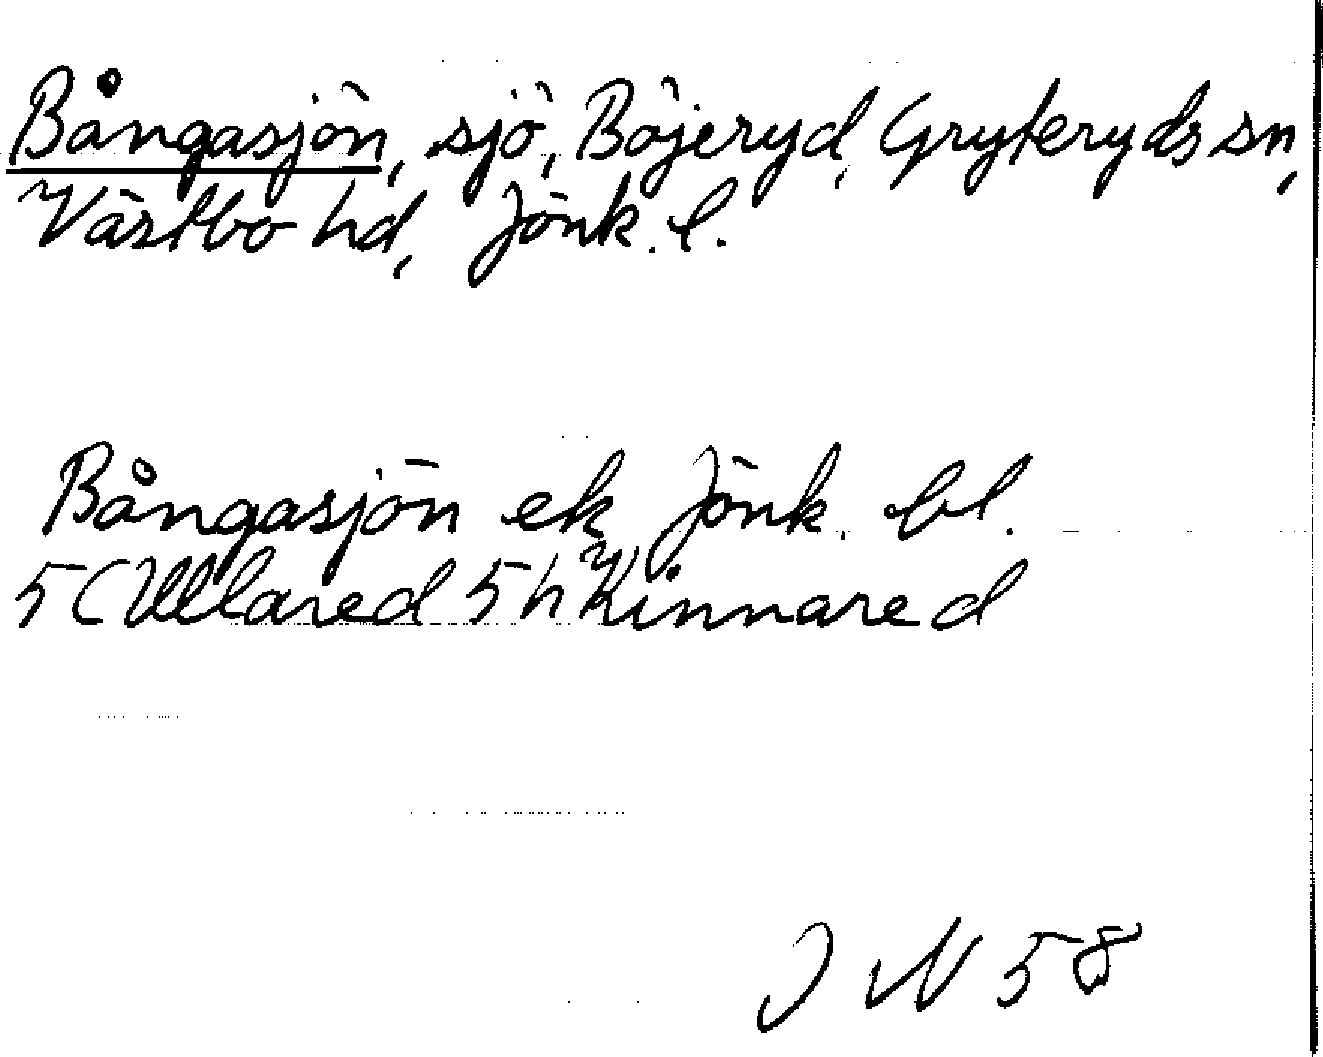 Bångasjön, sjö, Böjeryd, Gryteryds sn,
Västbo hd, Jönk. l.
Bångasjön ek Jönk. bl.
5 C Ullared 5 h Kinnared
J N 58